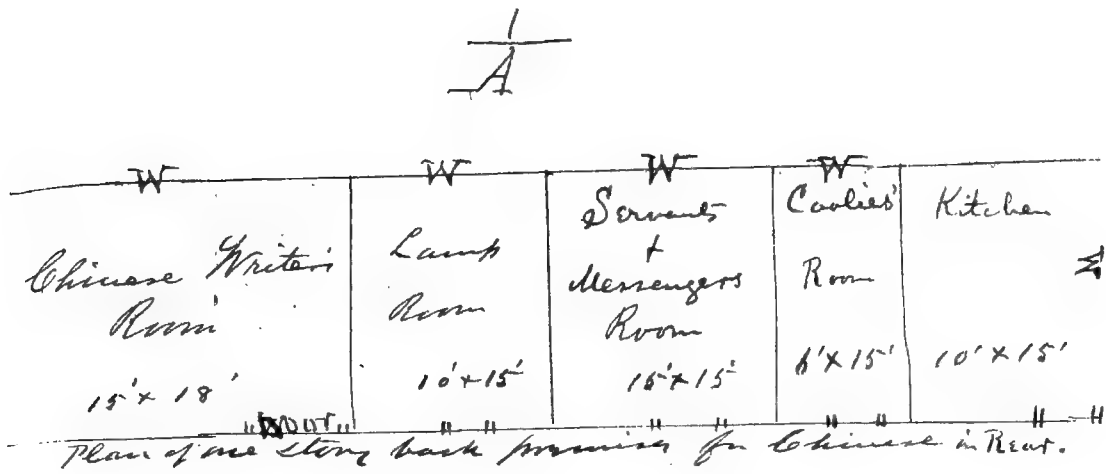 W
W
W
W
Chinese Writer's
Room
15' x 18'
Door
Lamp
Room
10' x 15'
Servants
+
Messengers
Room
15' x 15'
Coolies'
Room
6' x 15'
Kitchen
W
10' x 15'
Plan of one story back premises for Chinese in Rear.